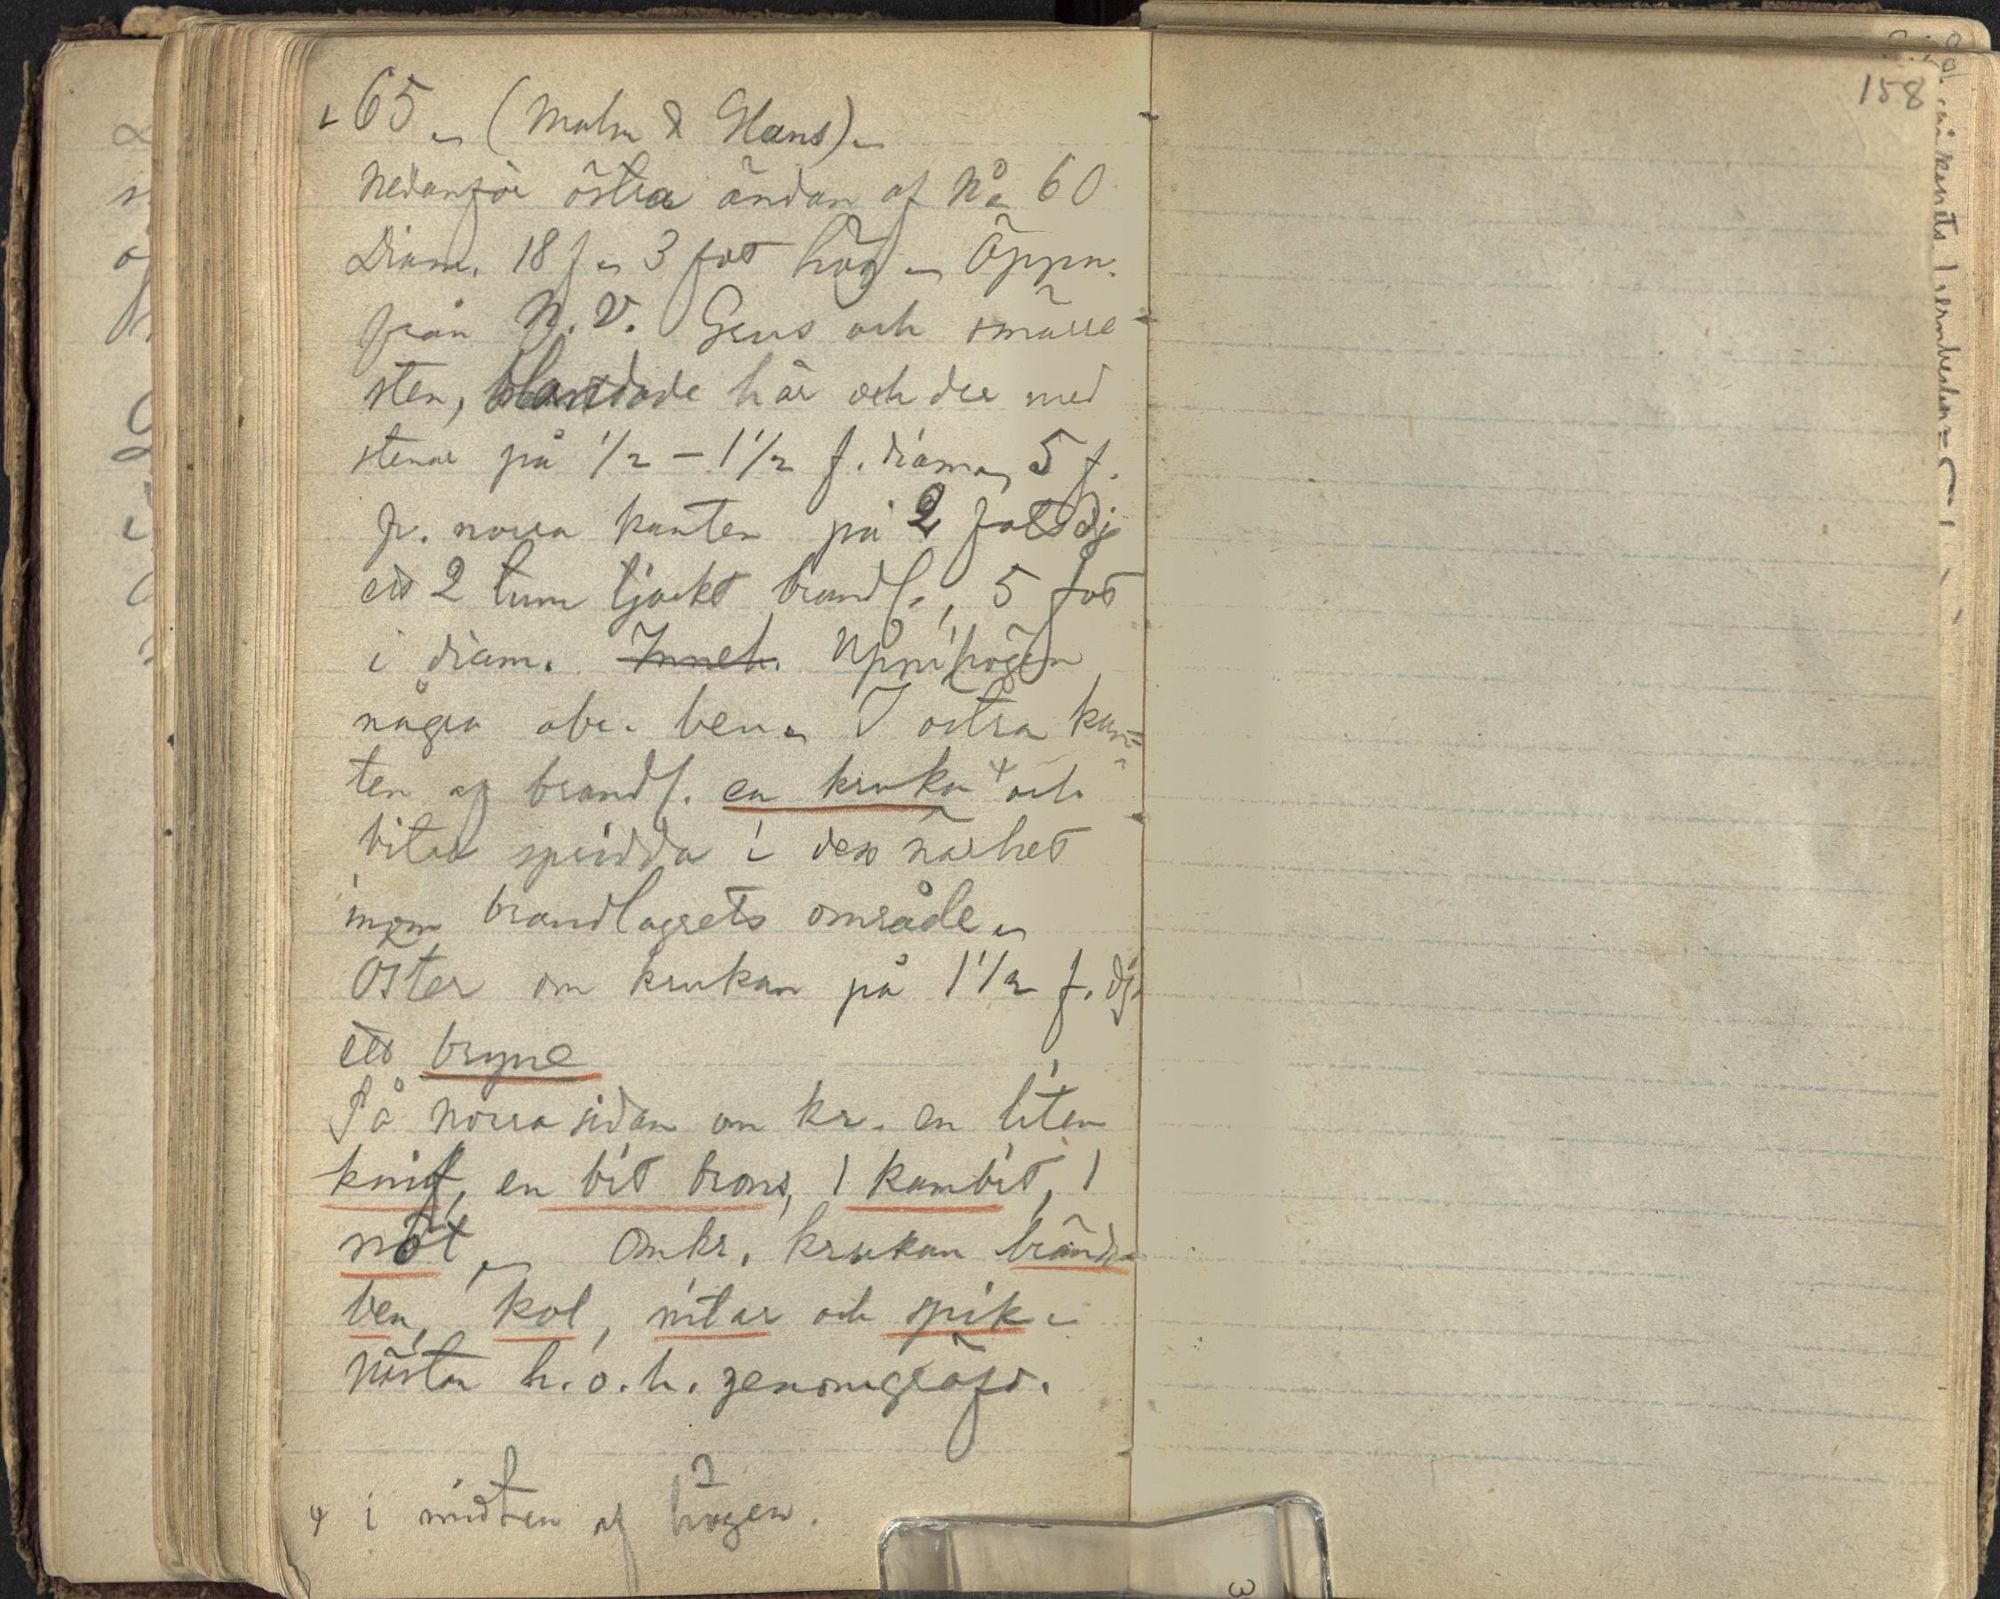 65. (Malm & Hans).
Nedanför östra ändan af No 60
Diam. 18 f. 3 fot hög. Öppn.
från N.V. Grus och smärre
sten, blandade här och der med
stenar på 1/2 – 1 1/2 f. diam. 5 f.
fr. norra kanten på 2 fots dj.
ett 2 tum tjockt brandl., 5 fot
i diam. Inneh. Uppi högen
några obr. ben. I östra kan=
ten af brandl. en kruka ψ och
bitar spridda i dess närhet
inom brandlagrets område.
Öster om krukan på 1 1/2 f. dj.
ett bryne
På norra sidan om kr. en liten
knif, en bit brons, 1 kambit, 1
nöt. Omkr. krukan brända
ben, kol, nitar och spik.
Nästan h. o. h. genomgräfd.
ψ i midten af högen.
158